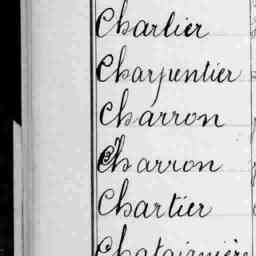 Charlier
Charpentier
Charron
Charron
Chartier